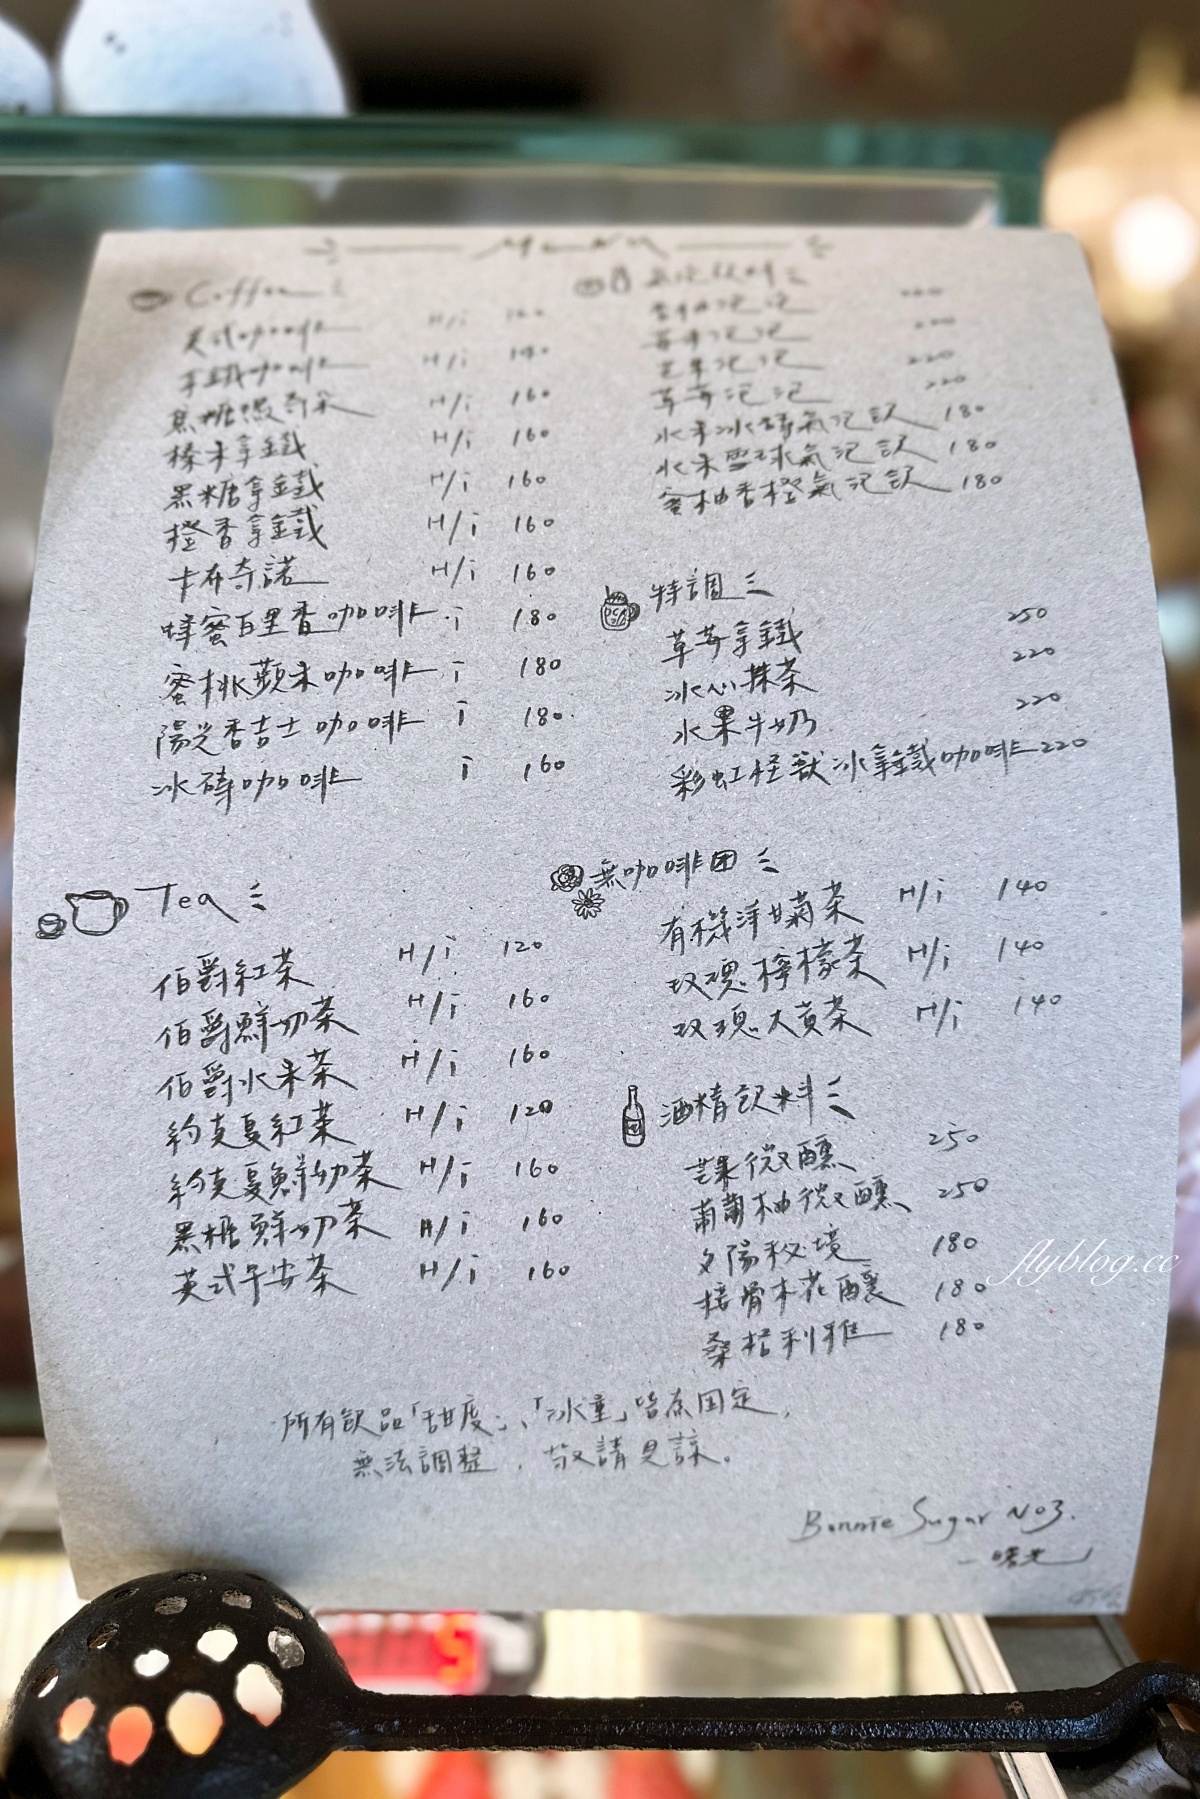 Menu
Coffee
美式咖啡 H/i 120
拿鐵咖啡 H/i 140
焦糖瑪奇朵 H/i 160
榛果拿鐵 H/i 160
黑糖拿鐵 H/i 160
橙香拿鐵 H/i 160
卡布奇諾 H/i 160
蜂蜜百里香咖啡 i 180
蜜桃蘋果咖啡 i 180
陽光香吉士咖啡 i 180
冰磚咖啡 i 160
Tea
伯爵紅茶 H/i 120
伯爵鮮奶茶 H/i 160
伯爵水果茶 H/i 160
約克夏紅茶 H/i 120
約克夏鮮奶茶 H/i 160
黑糖鮮奶茶 H/i 160
英式午安茶 H/i 160
氣泡飲料
泡泡
泡泡 220
芒果泡泡 220
草莓泡泡 220
水果冰磚氣泡飲 180
水果雪球氣泡飲 180
蜜柚香橙氣泡飲 180
特調
草莓拿鐵 250
冰心抹茶 220
水果牛奶 220
彩虹怪獸冰拿鐵咖啡 220
無咖啡因
有機洋甘菊茶 H/i 140
玫瑰檸檬茶 H/i 140
玫瑰大黃茶 H/i 140
酒精飲料
芒果微醺 250
葡萄柚微醺 250
夕陽秘境 180
接骨木花釀 180
桑格利雅 180
所有飲品「甜度」、「冰量」皆為固定,
無法調整，敬請見諒。
Bonnie Sugar No3.
一曙光
flyblog.cc